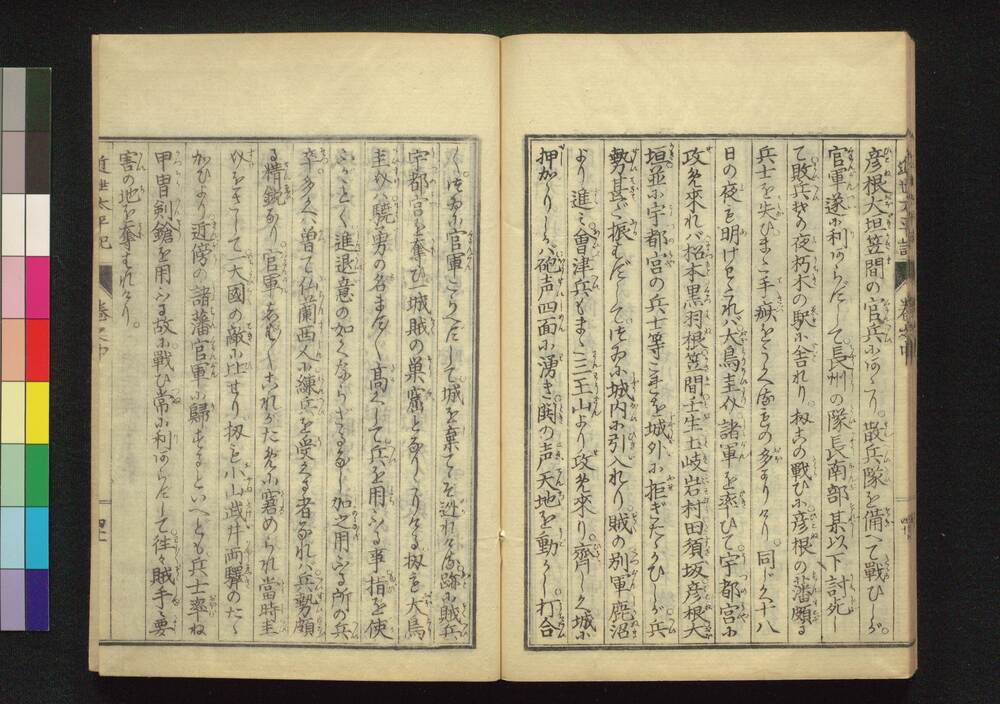 彦根大垣笠間の官兵にあへり。散兵隊を備へて戰ひしが。
官軍遂に利あらずして。長州の隊長南部某以下討死し
て敗兵其の夜朽木の駅に舎れり。扨この戰ひに彦根の藩頗る
兵士を失ひまた手瘊をうくるもの多かりけり。同じく十八
日の夜も明けければ大鳥圭介諸軍を率ひて。宇都宮に
攻め來れば松本黒羽根笠間壬生土岐岩村田須坂彦根大
垣並に宇都宮の兵士等これを城外に拒ぎたゝかひしが兵
勢甚だ振はずしてつひに城内に引入れり。賊の別軍鹿沼
より進み會津兵もまた三王山より攻め來り。齊しく城に
押かゝりしかば砲声四面に湧き鬨の声天地を動かし打合
近世太平記
四十
くつひに官軍こらへずして城を棄てぞ迯れける跡に賊兵
宇都宮を奪ひ城賊の巣窟となりにけりける扨も大鳥
圭介は驍勇の名ますく高くして兵を用ふる事指を使
ふごとく進退意の如くならざるなし加之用ふる所の兵
卒多くは曽て仏蘭西人に練兵を受ける者なれば兵勢頗
る精鋭なり。官軍もしばくこれがために窘められ當時圭
介をさして一大國の敵に比せり。扨も小山武井両驛のたゝ
かひより近傍の諸藩官軍に歸するといへども兵士率ね
甲冑剣鎗を用ふる故に戰ひ常に利あらずして往々賊手に要
害の地を奪はれけり。
近世太平記
四十一